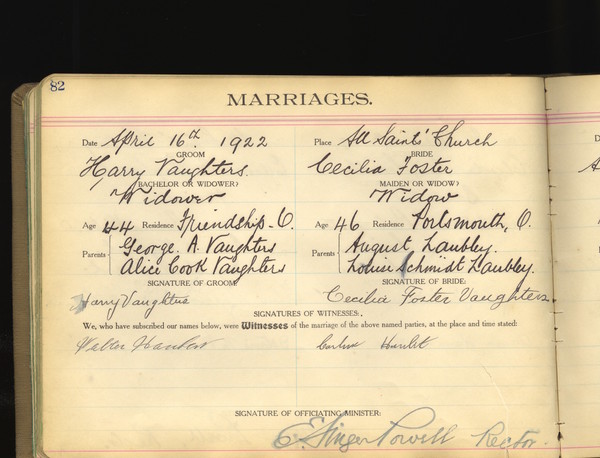 82
MARRIAGES.
Date April 16th 1922 Place All Saints' Church
GROOM BRIDE
Harry Vaughters. Cecilia Foster
BACHELOR OR WIDOWER? MAIDEN OR WIDOW?
Widower Widow
Age 44 Residence Friendship - O. Age 46 Residence Portsmouth, O.
Parents George. A. Vaughters Parents August Laubley.
Alice Cook Vaughters Louise Schmidt Laubley.
SIGNATURE OF GROOM: SIGNATURE OF BRIDE:
Harry Vaughters Cecilia Foster Vaughters
SIGNATURES OF WITNESSES,
We, who have subscribed our names below, were Witnesses of the marriage of the above named parties, at the place and time stated:
Walter
SIGNATURE OF OFFICIATING MINISTER:
E. Ainger Powell Rector.